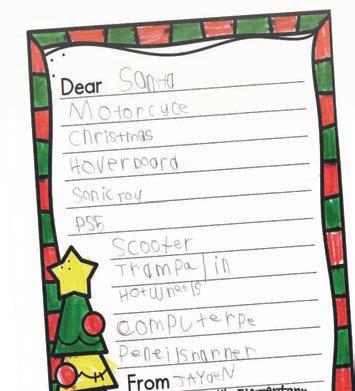 Dear Santa
Motorcyce
Christmas
Hoverboard
Sonic Toy
PS5
Scooter
Trampalin
Hotwheels
Computerpe
From JAYdeN
Elementary